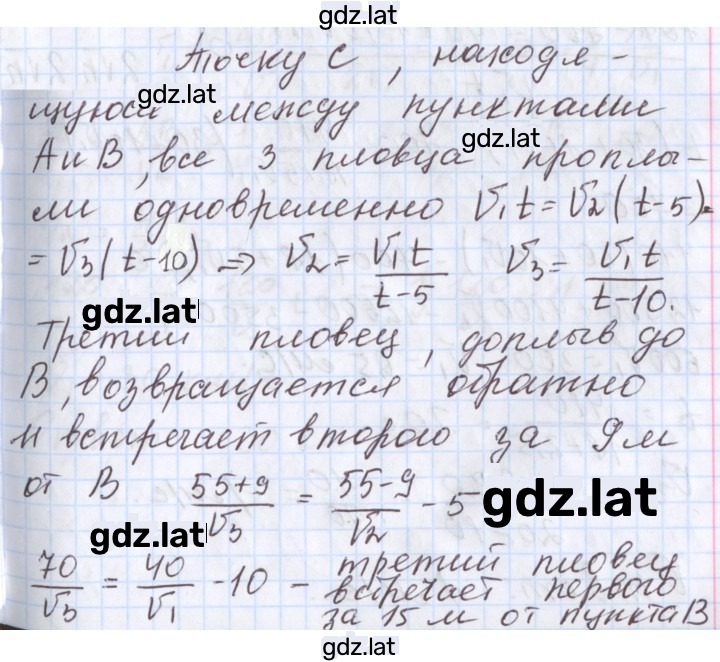 gdz.lat
Точку C, находя-
gdz.lat
щуюся между пунктами
gdz.lat
A и B, все 3 пловца проплы-
ли одновременно V₁t = V₂(t-5)=
= V₃(t-10) ⇒ V₂ = V₁t/(t-5) V₃ = V₁t/(t-10).
gdz.lat
Третий пловец, доплыв до
B, возвращается обратно
и встречает второго за 9 м
от B (55+9)/V₃ = (55-9)/V₂ - 5
gdz.lat
gdz.lat
70/V₃ = 40/V₁ - 10 - третий пловец
встречает первого
за 15 м от пункта B
gdz.lat